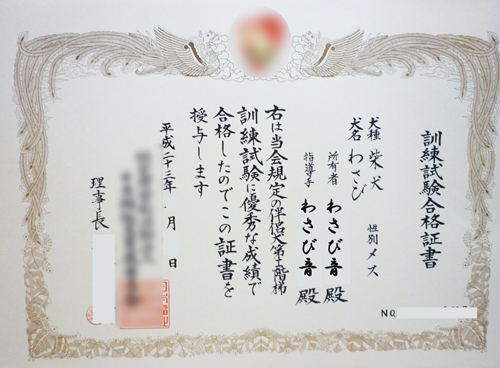 訓練試験合格証書
犬種 柴犬 性別 メス
犬名 わさび
所有者 わさび音 殿
指導手 わさび音 殿
右は当会規定の伴侶犬第二階梯
訓練試験に優秀な成績で
合格したのでこの証書を
授与します
平成二十三年 月 日
理事長
NO.